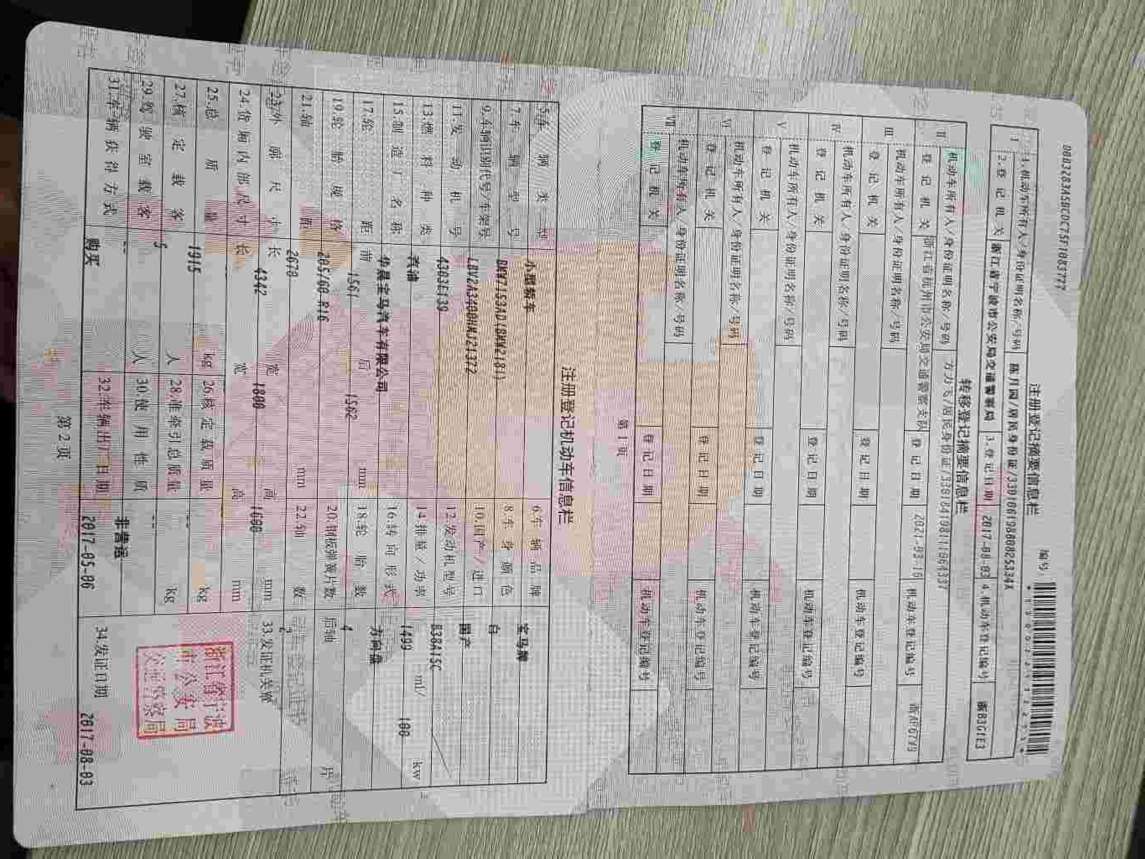 注册登记摘要信息栏
编号:
I 1.机动车所有人/身份证明名称/号码 陈月园/居民身份证/
2.登记机关 浙江省宁波市公安局交通警察局 3.登记日期 2017-08-03 4.机动车登记编号 浙B3G1E3
转移登记摘要信息栏
II 机动车所有人/身份证明名称/号码 方力飞/居民身份证/
登记机关 浙江省杭州市公安局交通警察支队 登记日期 2021-03-16 机动车登记编号
III 机动车所有人/身份证明名称/号码
登记机关 登记日期 机动车登记编号
IV 机动车所有人/身份证明名称/号码
登记机关 登记日期 机动车登记编号
V 机动车所有人/身份证明名称/号码
登记机关 登记日期 机动车登记编号
VI 机动车所有人/身份证明名称/号码
登记机关 登记日期 机动车登记编号
VII 机动车所有人/身份证明名称/号码
登记机关 登记日期 机动车登记编号
第1页
注册登记机动车信息栏
5.车辆类型 小型轿车 6.车辆品牌 宝马牌
7.车辆型号 8.车身颜色 白
9.车辆识别代号/车架号 10.国产/进口 国产
11.发动机号 4303E139 12.发动机型号 B38A15C
13.燃料种类 汽油 14.排量/功率 1499 ml/ 100 kw
15.制造厂名称 华晨宝马汽车有限公司 16.转向形式 方向盘
17.轮距 前 1561 后 1562 mm 18.轮胎数 4
19.轮胎规格 205/60 R16 20.钢板弹簧片数 后轴 片
21.轴距 2670 mm 22.轴数 2
23.外廓尺寸 长 4342 宽 1800 高 1600 mm 33.发证机关章
24.货厢内部尺寸 长 宽 高 mm
25.总质量 1915 kg 26.核定载质量 kg
27.核定载客 5 人 28.准牵引总质量 kg
29.驾驶室载客 人 30.使用性质 非营运
31.车辆获得方式 购买 32.车辆出厂日期 2017-05-06 34.发证日期 2017-08-03
浙江省宁波
市公安局
交通警察局
第2页